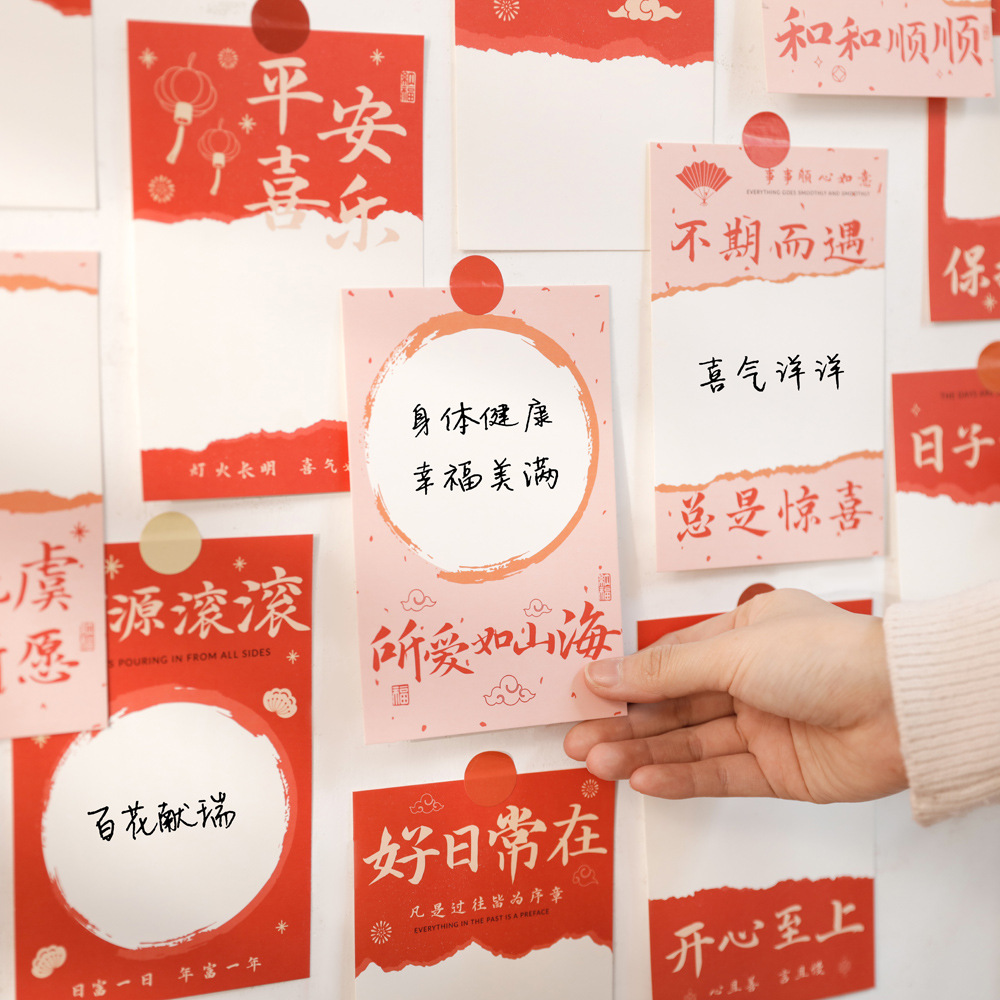 平安
喜乐
灯火长明 喜气
和和顺顺
事事顺心如意
EVERYTHING GOES SMOOTHLY AND SMOOTHLY
不期而遇
喜气洋洋
总是惊喜
保
THE DAYS
日子
身体健康
幸福美满
所爱如山海
福
虞
愿
源滚滚
POURING IN FROM ALL SIDES
百花献瑞
日富一日 年富一年
好日常在
凡是过往皆为序章
EVERYTHING IN THE PAST IS A PREFACE
开心至上